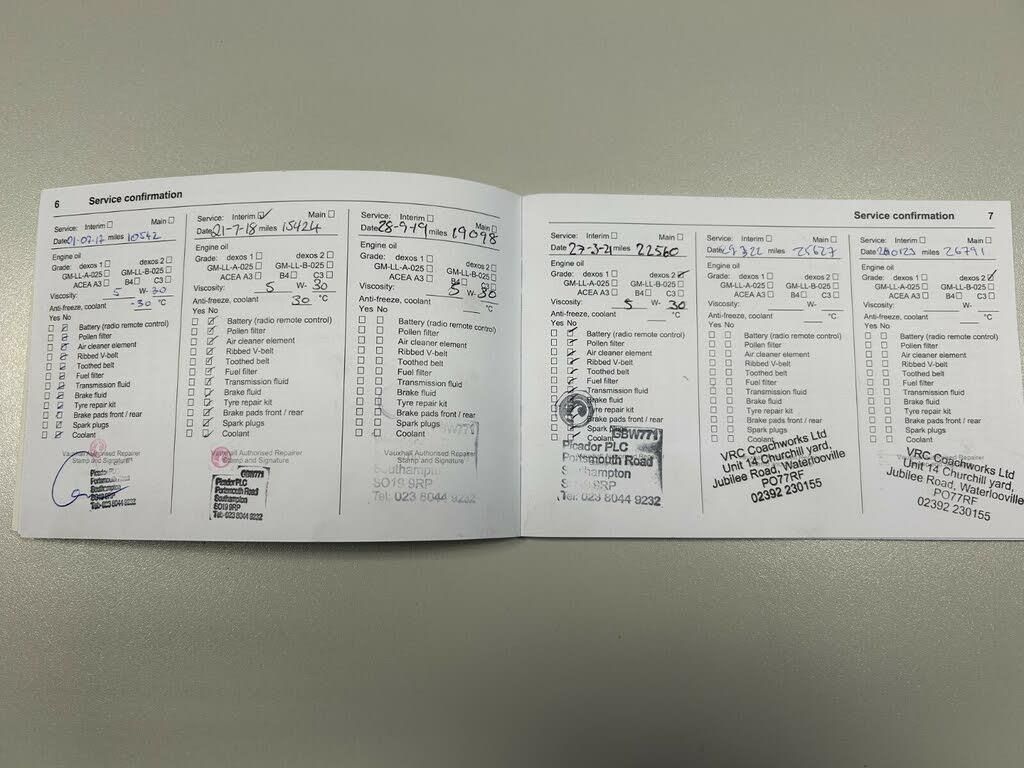 6 Service confirmation
Service: Interim Main
Date 01-07-17 miles 10542
Engine oil
Grade: dexos 1 dexos 2
GM-LL-A-025 GM-LL-B-025
ACEA A3 B4 C3
Viscosity: 5 W- 30
Anti-freeze, coolant -30 °C
Yes No
Battery (radio remote control)
Pollen filter
Air cleaner element
Ribbed V-belt
Toothed belt
Fuel filter
Transmission fluid
Brake fluid
Tyre repair kit
Brake pads front / rear
Spark plugs
Coolant
Vauxhall Authorised Repairer
Stamp and Signature
Picador PLC
Portsmouth Road
Southampton
SO19 9RP
Tel: 023 8044 9232
Service: Interim Main
Date 21-7-18 miles 15424
Engine oil
Grade: dexos 1 dexos 2
GM-LL-A-025 GM-LL-B-025
ACEA A3 B4 C3
Viscosity: 5 W- 30
Anti-freeze, coolant 30 °C
Yes No
Battery (radio remote control)
Pollen filter
Air cleaner element
Ribbed V-belt
Toothed belt
Fuel filter
Transmission fluid
Brake fluid
Tyre repair kit
Brake pads front / rear
Spark plugs
Coolant
Vauxhall Authorised Repairer
Stamp and Signature
GBW771
Picador PLC
Portsmouth Road
Southampton
SO19 9RP
Tel: 023 8044 9232
Service: Interim Main
Date 28-9-19 miles 19098
Engine oil
Grade: dexos 1 dexos 2
GM-LL-A-025 GM-LL-B-025
ACEA A3 B4 C3
Viscosity: 5 W- 30
Anti-freeze, coolant °C
Yes No
Battery (radio remote control)
Pollen filter
Air cleaner element
Ribbed V-belt
Toothed belt
Fuel filter
Transmission fluid
Brake fluid
Tyre repair kit
Brake pads front / rear
Spark plugs
Coolant
Vauxhall Authorised Repairer
Stamp and Signature
Southampt
SO19 9RP
Tel: 023 8044 9232
Service confirmation 7
Service: Interim Main
Date 27-3-21 miles 22560
Engine oil
Grade: dexos 1 dexos 2
GM-LL-A-025 GM-LL-B-025
ACEA A3 B4 C3
Viscosity: 5 W- 30
Anti-freeze, coolant °C
Yes No
Battery (radio remote control)
Pollen filter
Air cleaner element
Ribbed V-belt
Toothed belt
Fuel filter
Transmission fluid
Brake fluid
Tyre repair kit
Brake pads front / rear
Spark plugs
Coolant
GBW771
Picador PLC
Portsmouth Road
Southampton
SO19 9RP
Tel: 023 8044 9232
Service: Interim Main
Date miles 25627
Engine oil
Grade: dexos 1 dexos 2
GM-LL-A-025 GM-LL-B-025
ACEA A3 B4 C3
Viscosity: W-
Anti-freeze, coolant °C
Yes No
Battery (radio remote control)
Pollen filter
Air cleaner element
Ribbed V-belt
Toothed belt
Fuel filter
Transmission fluid
Brake fluid
Tyre repair kit
Brake pads front / rear
Spark plugs
Coolant
VRC Coachworks Ltd
Unit 14 Churchill yard,
Jubilee Road, Waterlooville
PO77RF
02392 230155
Service: Interim Main
Date miles 26791
Engine oil
Grade: dexos 1 dexos 2
GM-LL-A-025 GM-LL-B-025
ACEA A3 B4 C3
Viscosity: W-
Anti-freeze, coolant °C
Yes No
Battery (radio remote control)
Pollen filter
Air cleaner element
Ribbed V-belt
Toothed belt
Fuel filter
Transmission fluid
Brake fluid
Tyre repair kit
Brake pads front / rear
Spark plugs
Coolant
VRC Coachworks Ltd
Unit 14 Churchill yard,
Jubilee Road, Waterlooville
PO77RF
02392 230155